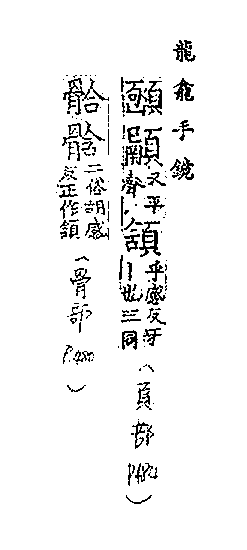 龍龕手鏡
顄 又平 頷 乎感反牙丨也三同(頁部 P.484)
二俗胡感反正作頷(骨部 P.480)